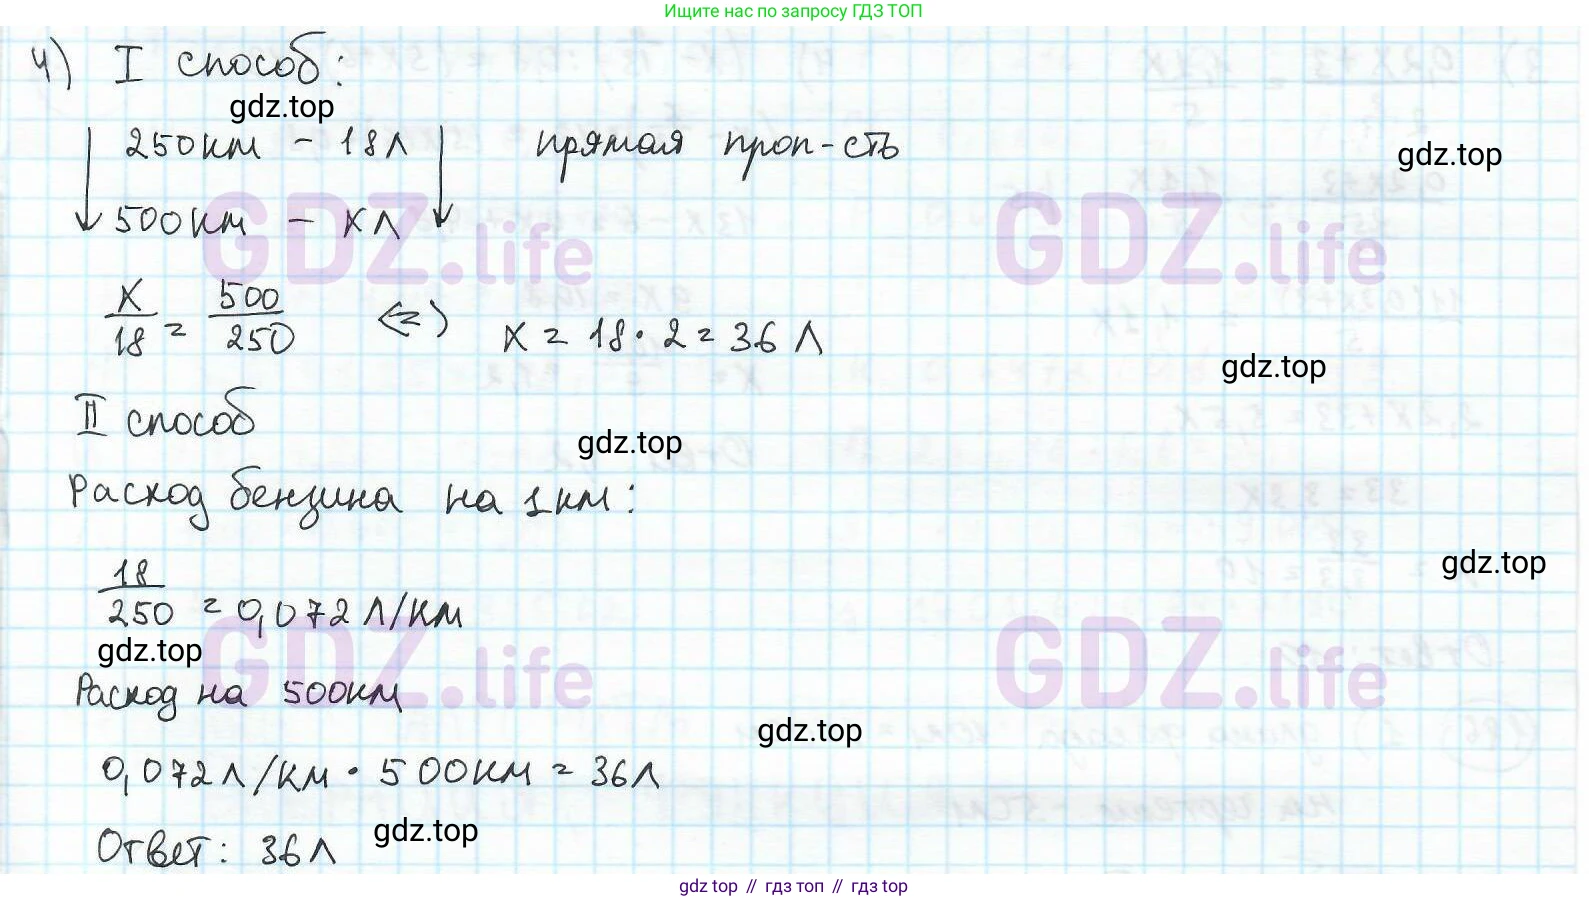 Ищите нас по запросу ГДЗ ТОП
4) I способ:
gdz.top
250км - 18л прямая проп-сть
gdz.top
500км - x л
GDZ.life GDZ.life
x/18 = 500/250 <=> x = 18 · 2 = 36 л
gdz.top
II способ
gdz.top
Расход бензина на 1км:
gdz.top
18/250 = 0,072 л/км
gdz.top
GDZ.life GDZ.life
Расход на 500км
gdz.top
0,072л/км · 500км = 36л
gdz.top
Ответ: 36л
gdz top // гдз топ // gdz top